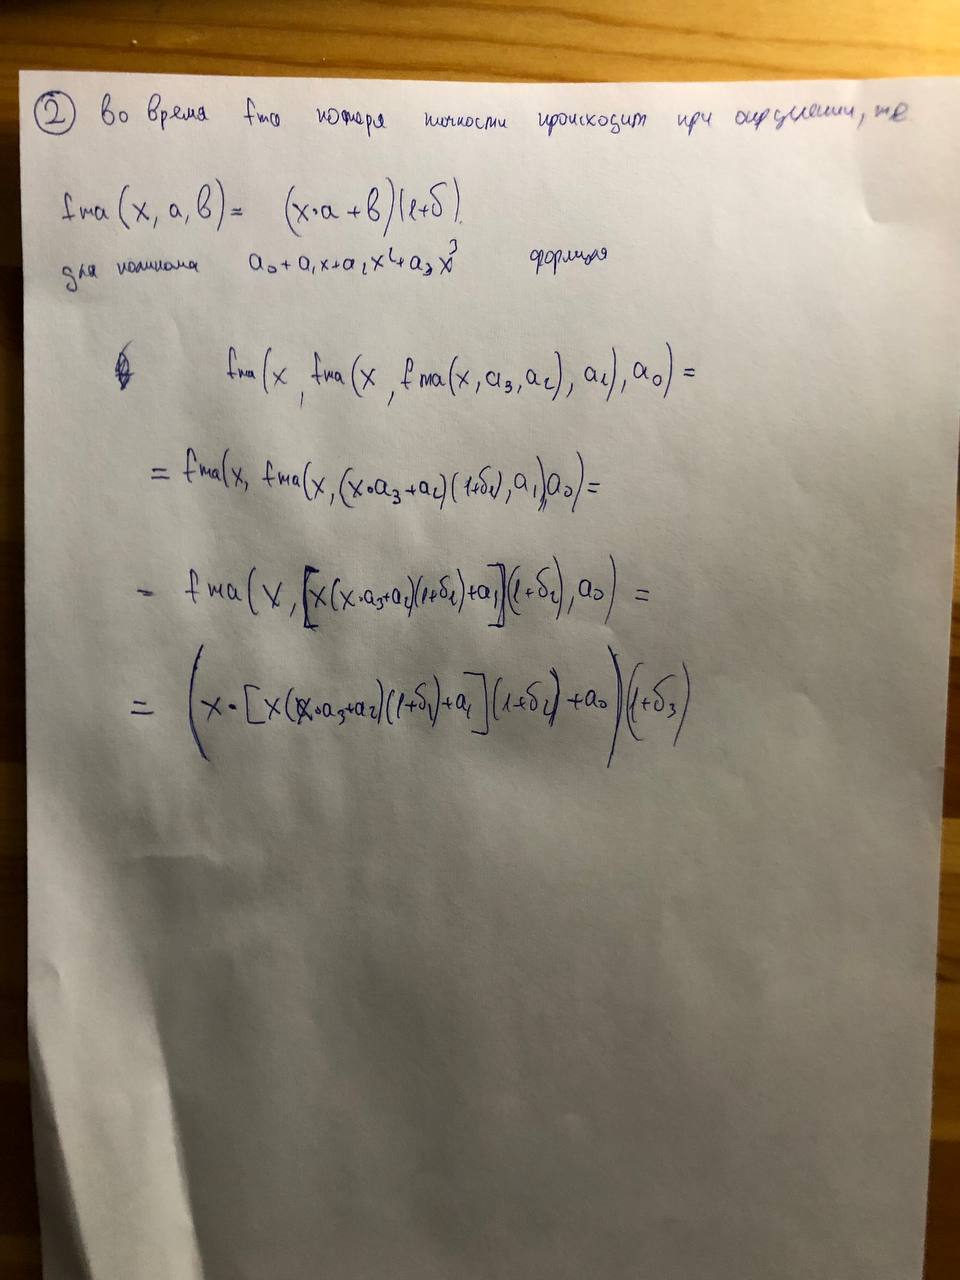 ② во время fma потеря точности происходит при округлении, т.е.
fma(x, a, b) = (x·a + b)(1+δ).
для полинома a₀ + a₁x + a₂x² + a₃x³ формула
fma(x, fma(x, fma(x, a₃, a₂), a₁), a₀) =
= fma(x, fma(x, (x·a₃+a₂)(1+δ₁), a₁), a₀) =
= fma(x, [x(x·a₃+a₂)(1+δ₁)+a₁](1+δ₂), a₀) =
= (x·[x(x·a₃+a₂)(1+δ₁)+a₁](1+δ₂)+a₀)(1+δ₃)